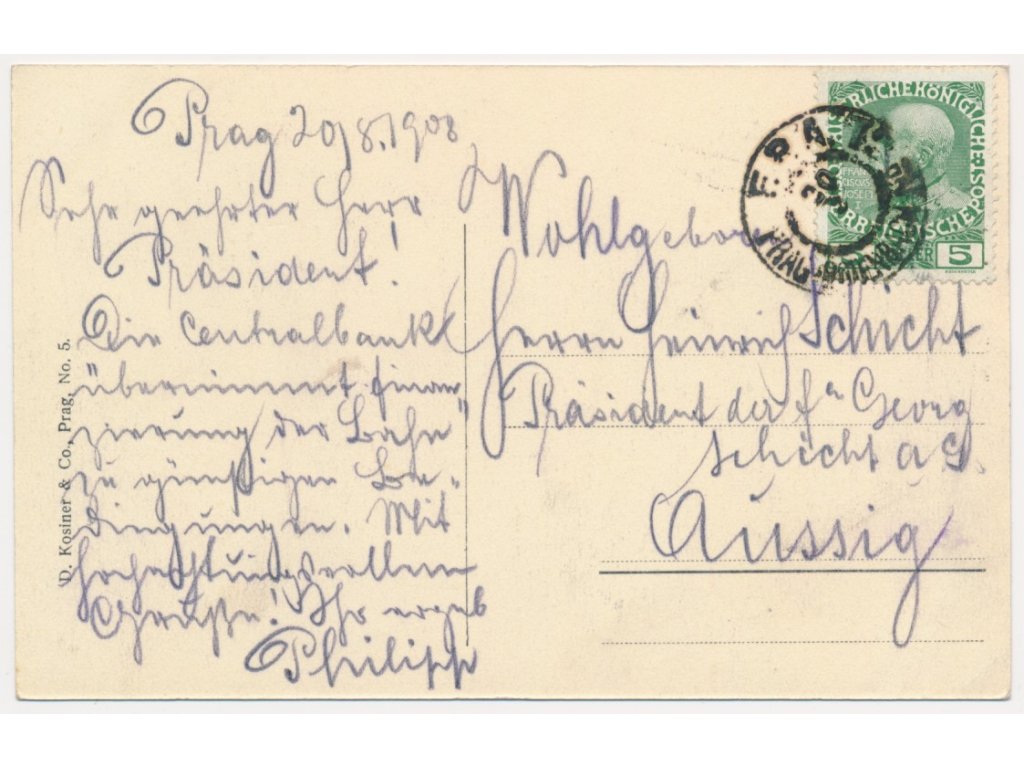 Prag 20/8.1908
Sehr geehrter Herr
Präsident!
Die Centralbank
übernimmt Finan
zierung der Bahn
zu günstigen Be-
dingungen. Mit
hochachtungsvollem
Gruße! Ihr ergeb
Philipp
D. Kosiner & Co., Prag, No. 5.
Wohlgebor
Herrn Heinrich Schicht
Präsident der fa Georg
Schicht A G.
Aussig
KÖNIGLICHE
5